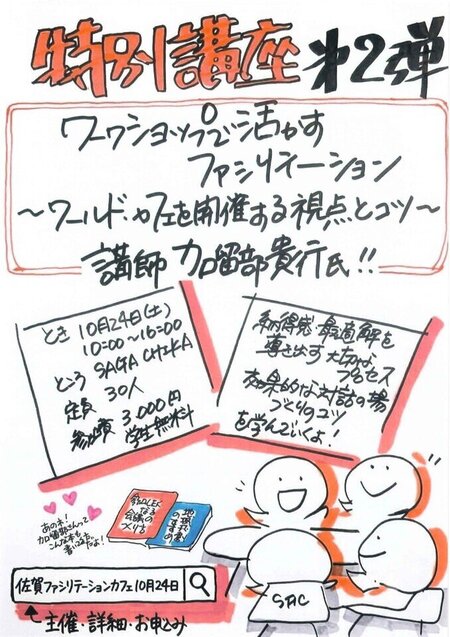 特別講座 第2弾
ワークショップで活かす
ファシリテーション
～ワールドカフェを開催する視点とコツ～
講師 加留部貴行氏!!
とき 10月24日(土)
10:00~16:00
ところ SAGA CHIKA
定員 30人
参加費 3,000円
学生無料
納得感・最適解を
導き出す大切な
プロセス
効果的な対話の場
づくりのコツ
を学んでいくよ!
あのネ!
加留部さんって
こんな本も
書いてるよ!
参加したく
なる
会議の
つくり方
地域
SAC
佐賀ファシリテーションカフェ10月24日
主催・詳細・お申込み